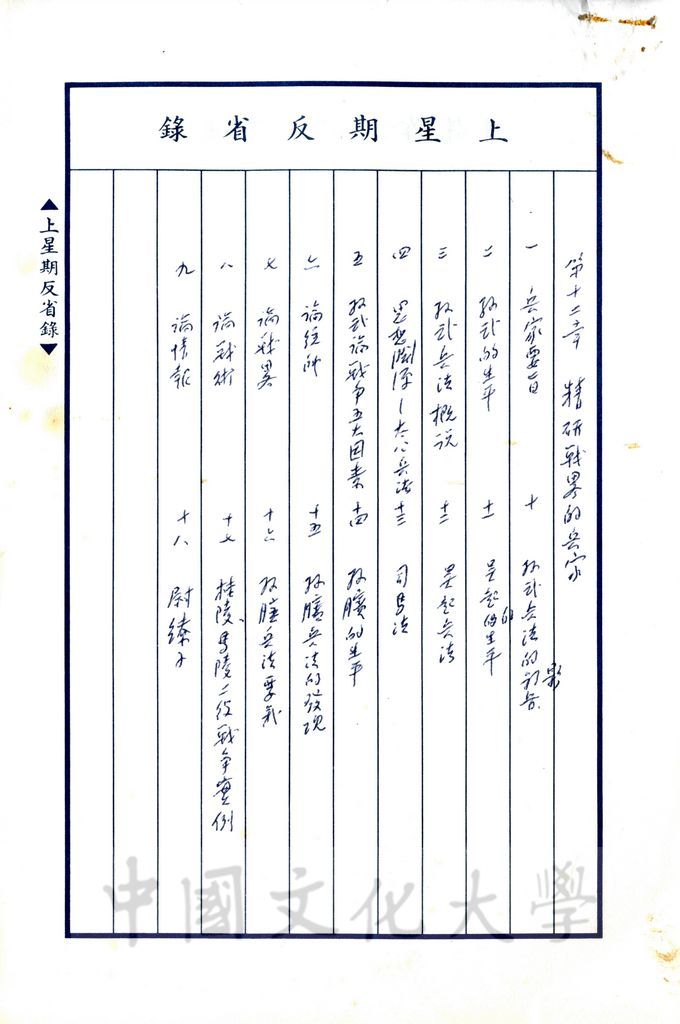 上星期反省錄
第十二章 精研戰畧的兵家
一 兵家要旨
二 孫武的生平
三 孫武兵法概說
四 思想淵源—太公兵法
五 孫武論戰爭五大因素
六 論統帥
七 論戰畧
八 論戰術
九 論情報
十 孫武兵法的影
十一 吳起的生平
十二 吳起兵法
十三 司馬法
十四 孫臏的生平
十五 孫臏兵法的發現
十六 孫臏兵法要義
十七 桂陵、馬陵二役戰爭實例
十八 尉繚子
▲上星期反省錄▼
中國文化大學